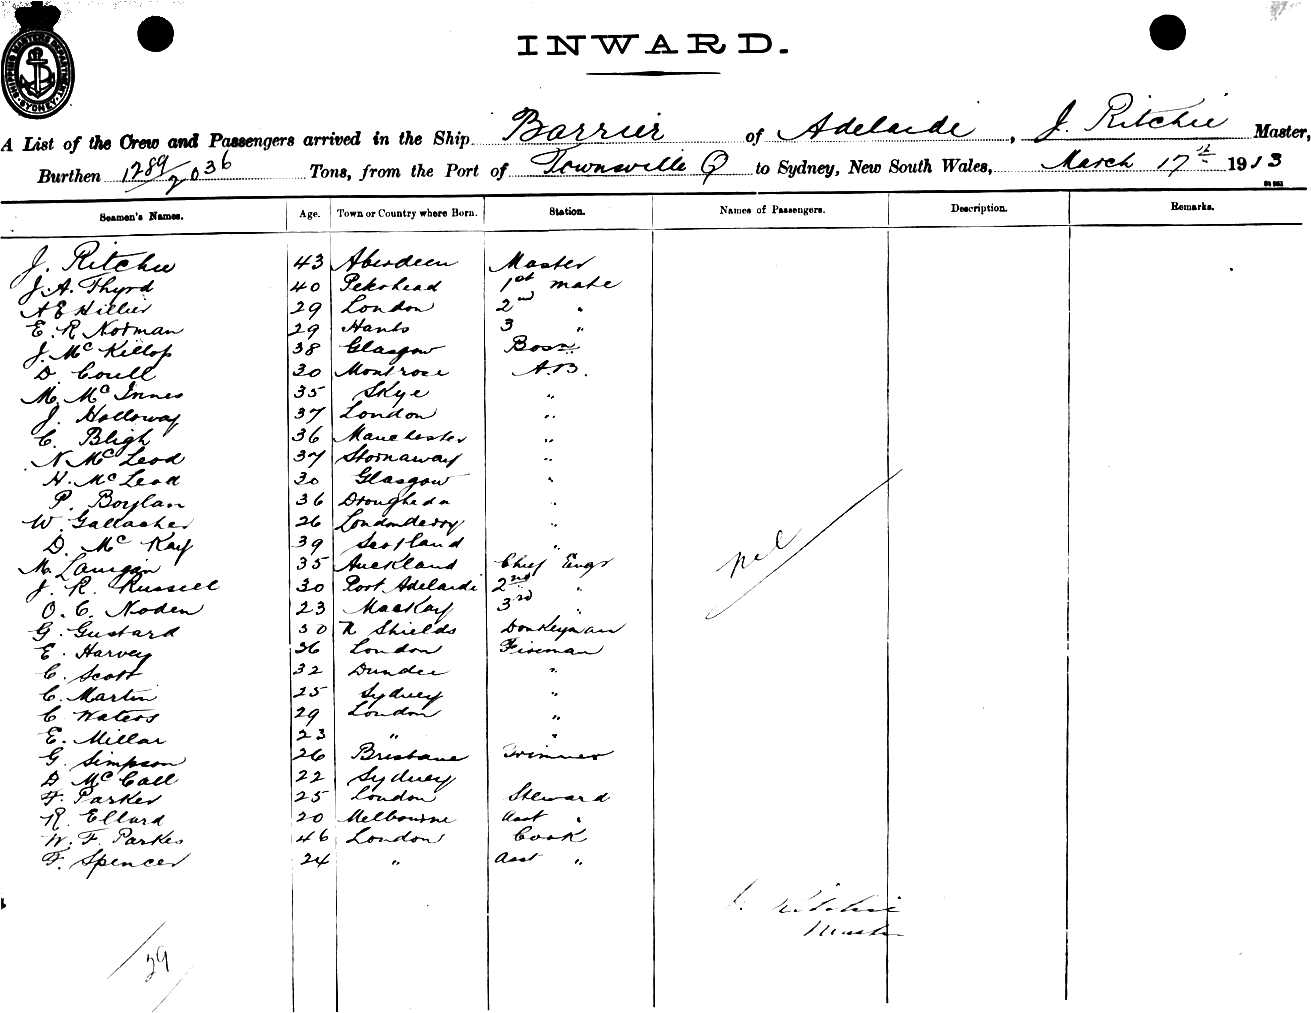 SHIPPING MASTERS DEPARTMENT SYDNEY
INWARD.
A List of the Crew and Passengers arrived in the Ship Barrier of Adelaide, J. Ritchie Master,
Burthen 1289/2036 Tons, from the Port of Townsville Q to Sydney, New South Wales, March 17th 1913
Seamen's Names. Age. Town or Country where Born. Station. Names of Passengers. Description. Remarks.
J. Ritchie 43 Aberdeen Master
J. A. Thyrd 40 Pekohead 1st mate
A E Hillier 29 London 2nd "
E. R Norman 29 Hants 3 "
J. Mc Killop 38 Glasgow Bosn
D. Coull 30 Montrose A.B.
M. Mc Innes 35 Skye "
J. Holloway 37 London "
C. Bligh 36 Manchester "
N Mc Leod 37 Stornaway "
H. Mc Leod 30 Glasgow "
P. Boylan 36 Drougheda "
W. Gallagher 26 Londonderry "
D. Mc Kay 39 Scotland "
M. Lanigan 35 Auckland Chief Engr
J. R. Russell 30 Port Adelaide 2nd "
O. C. Noden 23 MacKay 3rd "
G. Gustard 30 N Shields Donkeyman
E. Harvey 36 London Fireman
C. Scott 32 Dundee "
C. Martin 25 Sydney "
C Waters 29 London "
E. Millar 23 " "
G. Simpson 26 Brisbane Trimmer
D McCall 22 Sydney
F. Parker 25 London Steward
R. Ellard 20 Melbourne Asst "
W. F. Parkes 46 London Cook
F. Spencer 24 " Asst "
nil
J. Ritchie
Master
29